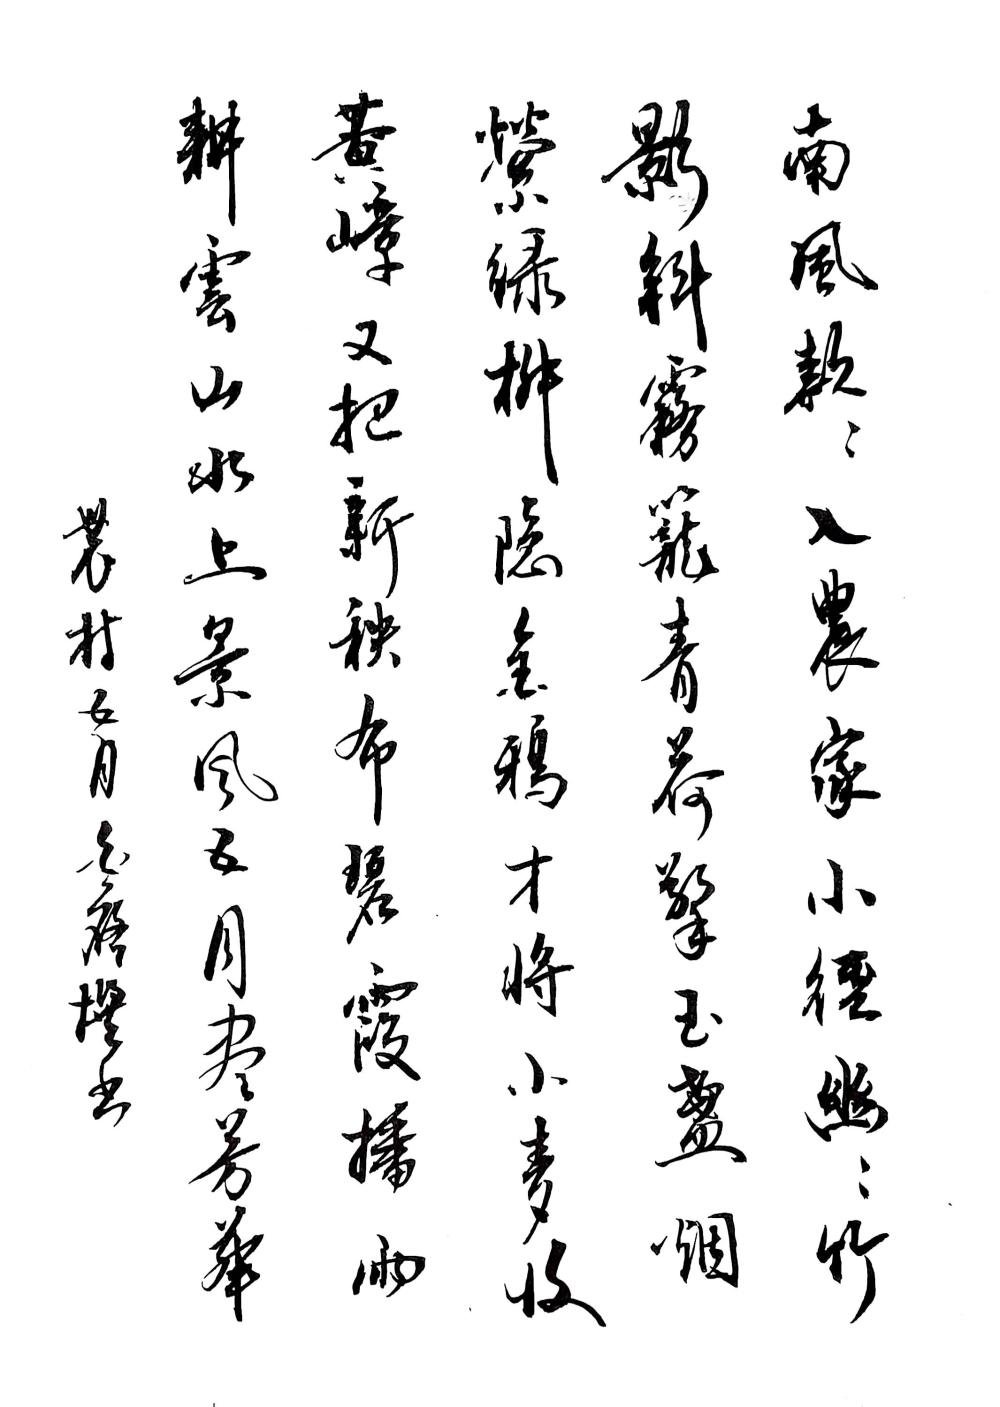 南風款〻入農家小徑幽〻竹
影斜霧籠青荷擎玉盞烟
縈绿柳隐金鴉才將小麦收
黄嶂又把新秧布碧霞播雨
耕雲山水上景风五月尽芳華
農村五月